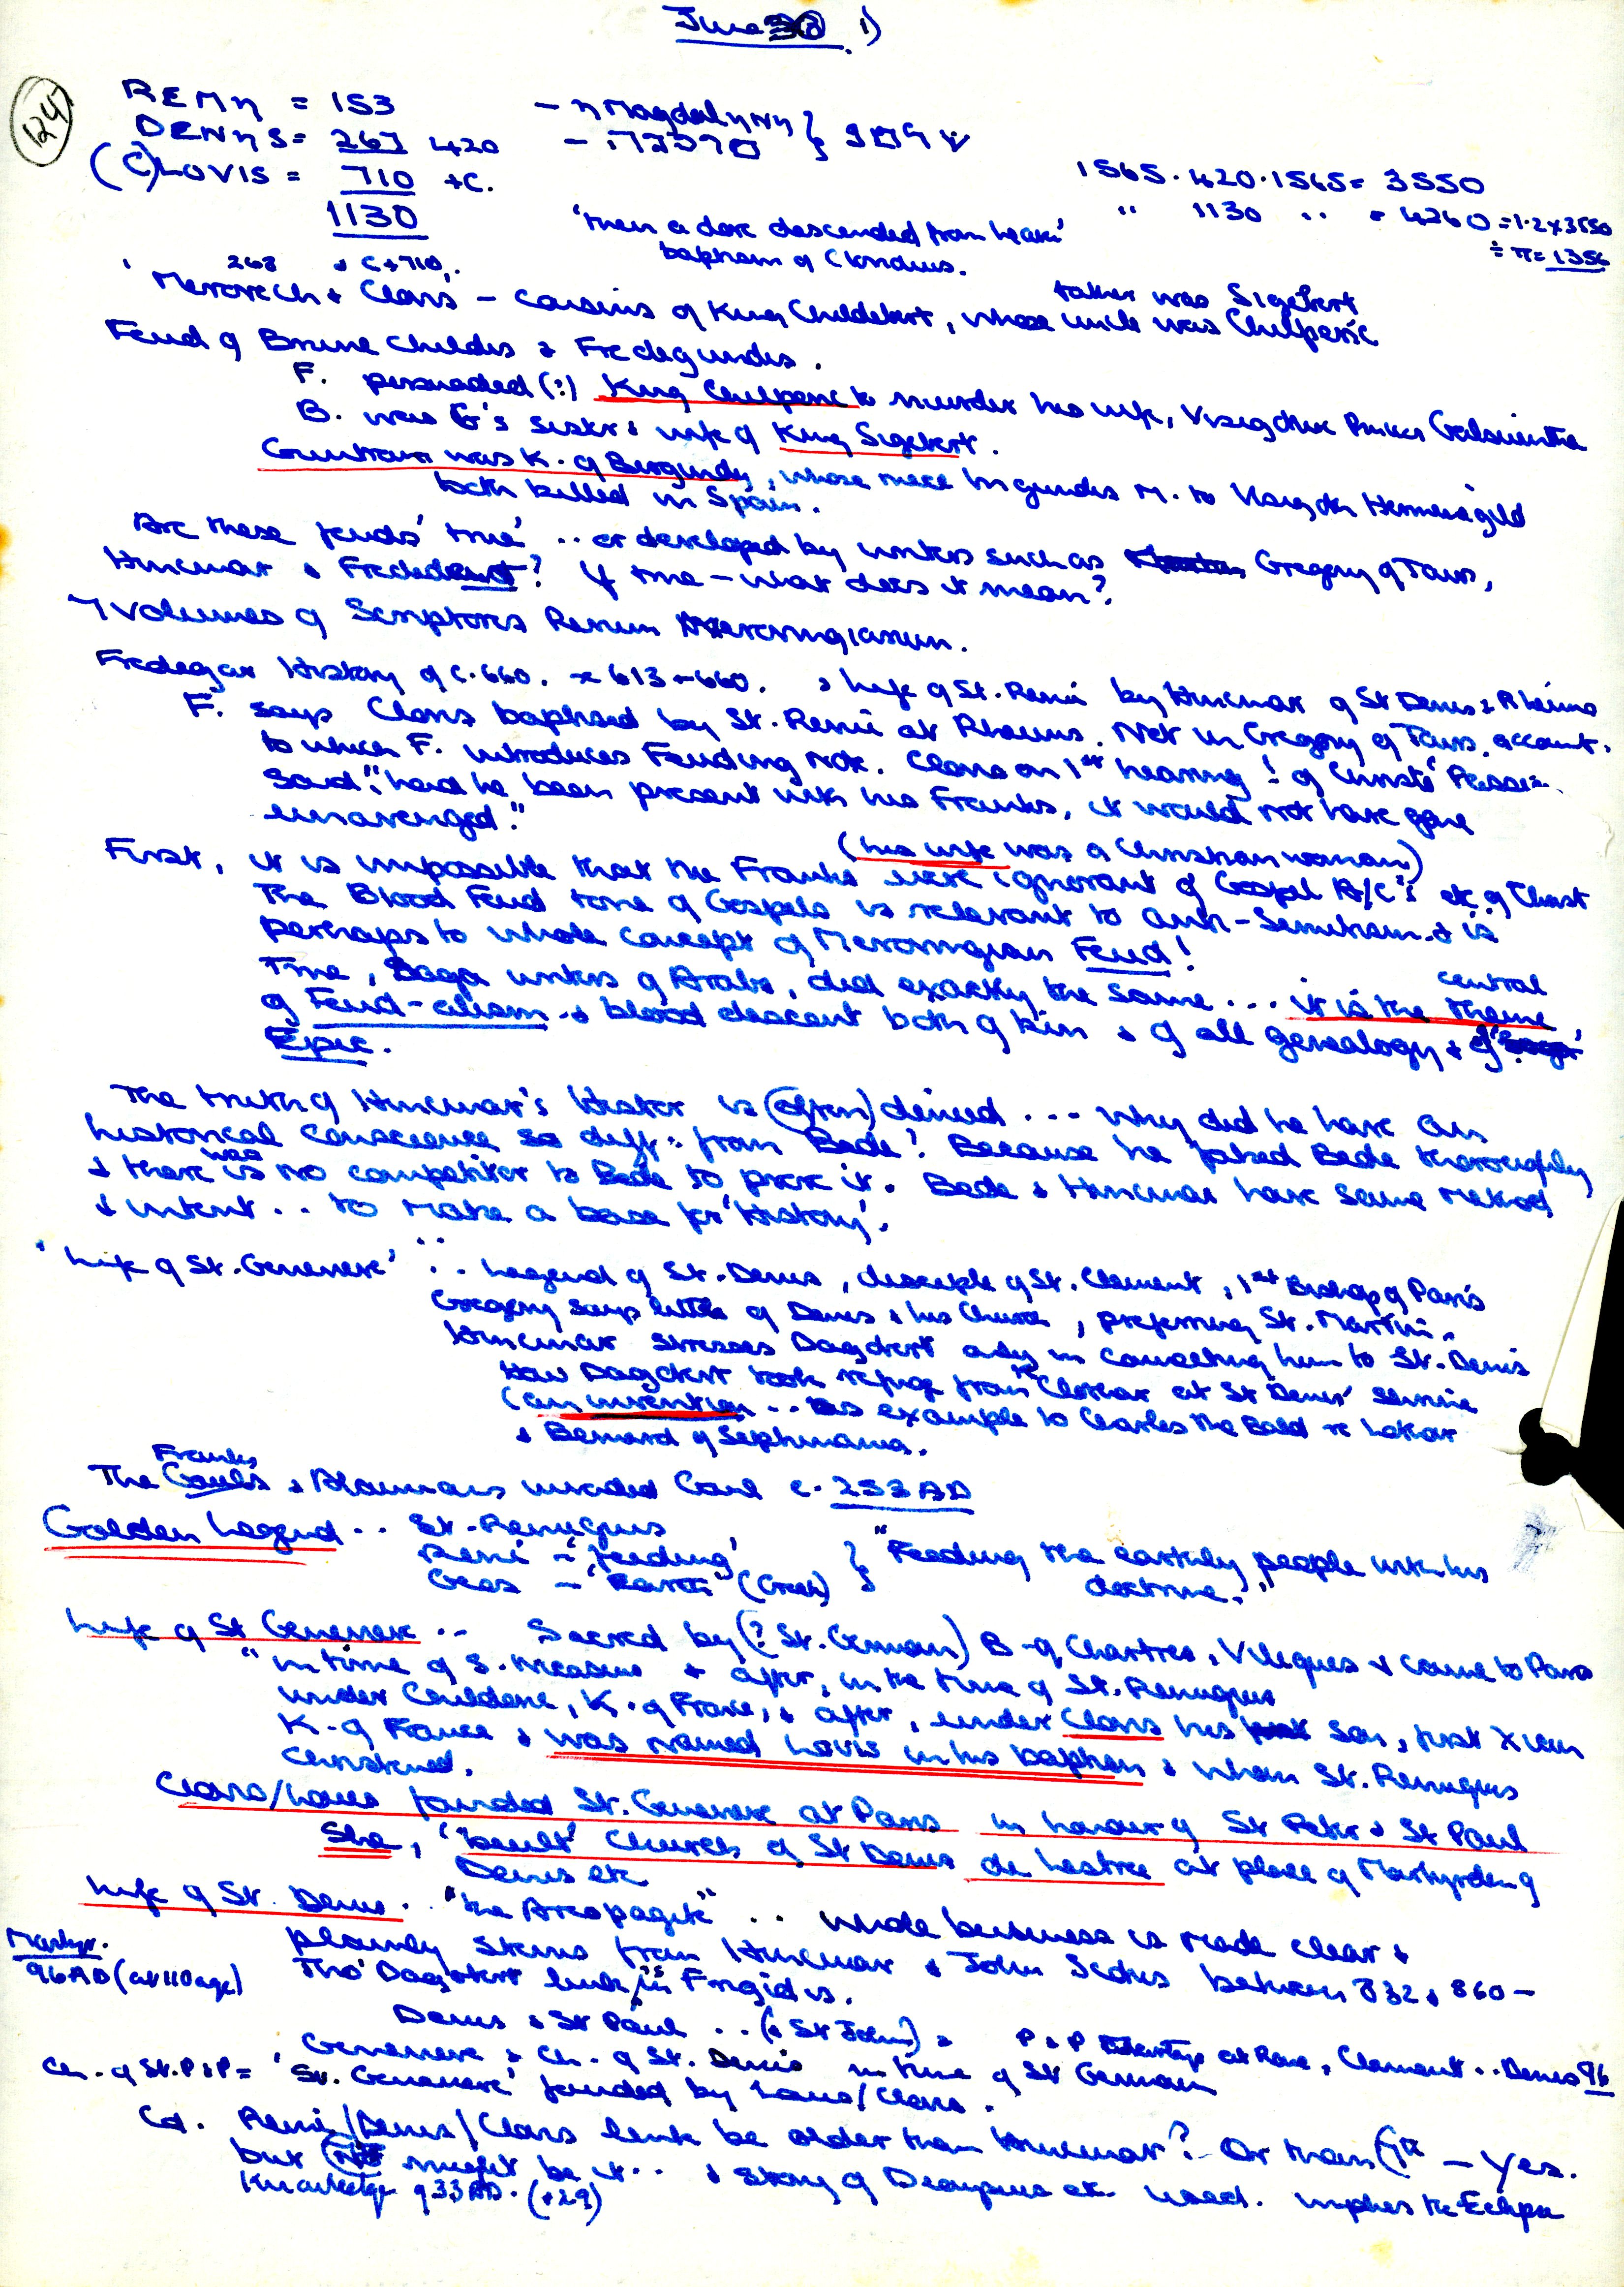 June 30 1)
124
REMη = 153 — η MagdalηNη }
DENηS = 267 420
(C)LOVIS = 710 + C.
1130
1565 . 420 . 1565 = 3550
" 1130 " = 4260 = 1.2 x 3550
÷ π = 1356
'then a dove descended from heaven'
baptism of Clovis.
268 & C+710
'Merovech & Clovis' – cousins of King Childebert, whose uncle was Chilperic
father was Sigebert
Feud of Brunechildis & Fredegundis.
F. persuaded (?) King Chilperic to murder his wife, Visigothic Princess Galswintha
B. was G's sister & wife of King Sigebert.
Guntram was K. of Burgundy, whose niece Ingundis m. to Visigoth Hermenegild
both killed in Spain.
Are these feuds 'true' .. or developed by writers such as Gregory of Tours,
Hincmar & ? If true – what does it mean?
7 Volumes of Scriptores Rerum Merovingiarum.
Fredegar History of c. 660. 613–660. & Life of St. Remi by Hincmar of St Denis & Rheims
F. says Clovis baptised by St. Remi at Rheims. Not in Gregory of Tours account.
to which F. introduces Feuding note. Clovis on 1st hearing! of Christ's Passion
said "had he been present with his Franks, it would not have gone
unavenged."
(his wife was a Christian woman)
First, it is impossible that the Franks were ignorant of Gospel A/C's etc of Christ
The Blood Feud tone of Gospels is relevant to anti-Semitism & is
perhaps to whole concept of Merovingian Feud!
True, Saga writers of Arabs, did exactly the same ... it is the central theme,
of Feud-alism & blood descent both of kin & of all genealogy & of
Epic.
The truth of Hincmar's Histor is (often) denied ... Why did he have an
historical conscience so diff. from Bede? Because he faked Bede thoroughly
& there was no competitor to Bede to prove it. Bede & Hincmar have same method
& intent .. to make a base for 'History'.
'Life of St. Genevieve' .. Legend of St. Denis, disciple of St. Clement, 1st Bishop of Paris
Gregory says little of Denis & his Church, preferring St. Martin.
Hincmar stresses Dagobert only in connecting him to St. Denis
How Dagobert took refuge from Clothar at St Denis' shrine
(an invention .. as example to Charles the Bald re Lothar
& Bernard of Septimania.
Franks
The Gauls & Alamans invaded Gaul c. 233 AD
Golden Legend .. St. Remigius
Remi – 'feeding' } "Feeding the earthly people with his
Geos – 'Earth' (Greek) } doctrine."
Life of St Genevieve .. Sacred by (? St. German) B – of Chartres, Viliques & came to Paris
"in time of S. & after, in the time of St. Remigius
under Childeric, K. of France, & after, under Clovis his son, first Xian
K. of France & was named Lovis in his baptism & whom St. Remigius
christened.
Clovis/Loues founded St. Genevieve at Paris in honour of St Peter & St Paul
She, 'built' Church of St Denis de Lestree at place of Martyrdom of
Denis etc
Life of St. Denis. "the Areopagite" .. whole business is made clear &
plainly stems from Hincmar & John Scotus between 832 & 860 –
Tho' Dagobert link is in Frigidis.
Martyr.
96 AD (at 110 age)
Denis & St Paul .. (& St John) & P & P at Rome, Clement .. Denis 96
Genevieve & Ch. of St. Denis in time of St German
Ch. of St. P & P = 'St. Genevieve' founded by Loues/Clovis.
Cd. Remi/Denis/Clovis link be older than Hincmar? Or than – Yes.
but might be it .. & story of etc. used. implies the Eclipse
Knowledge of 33 AD. (+29)